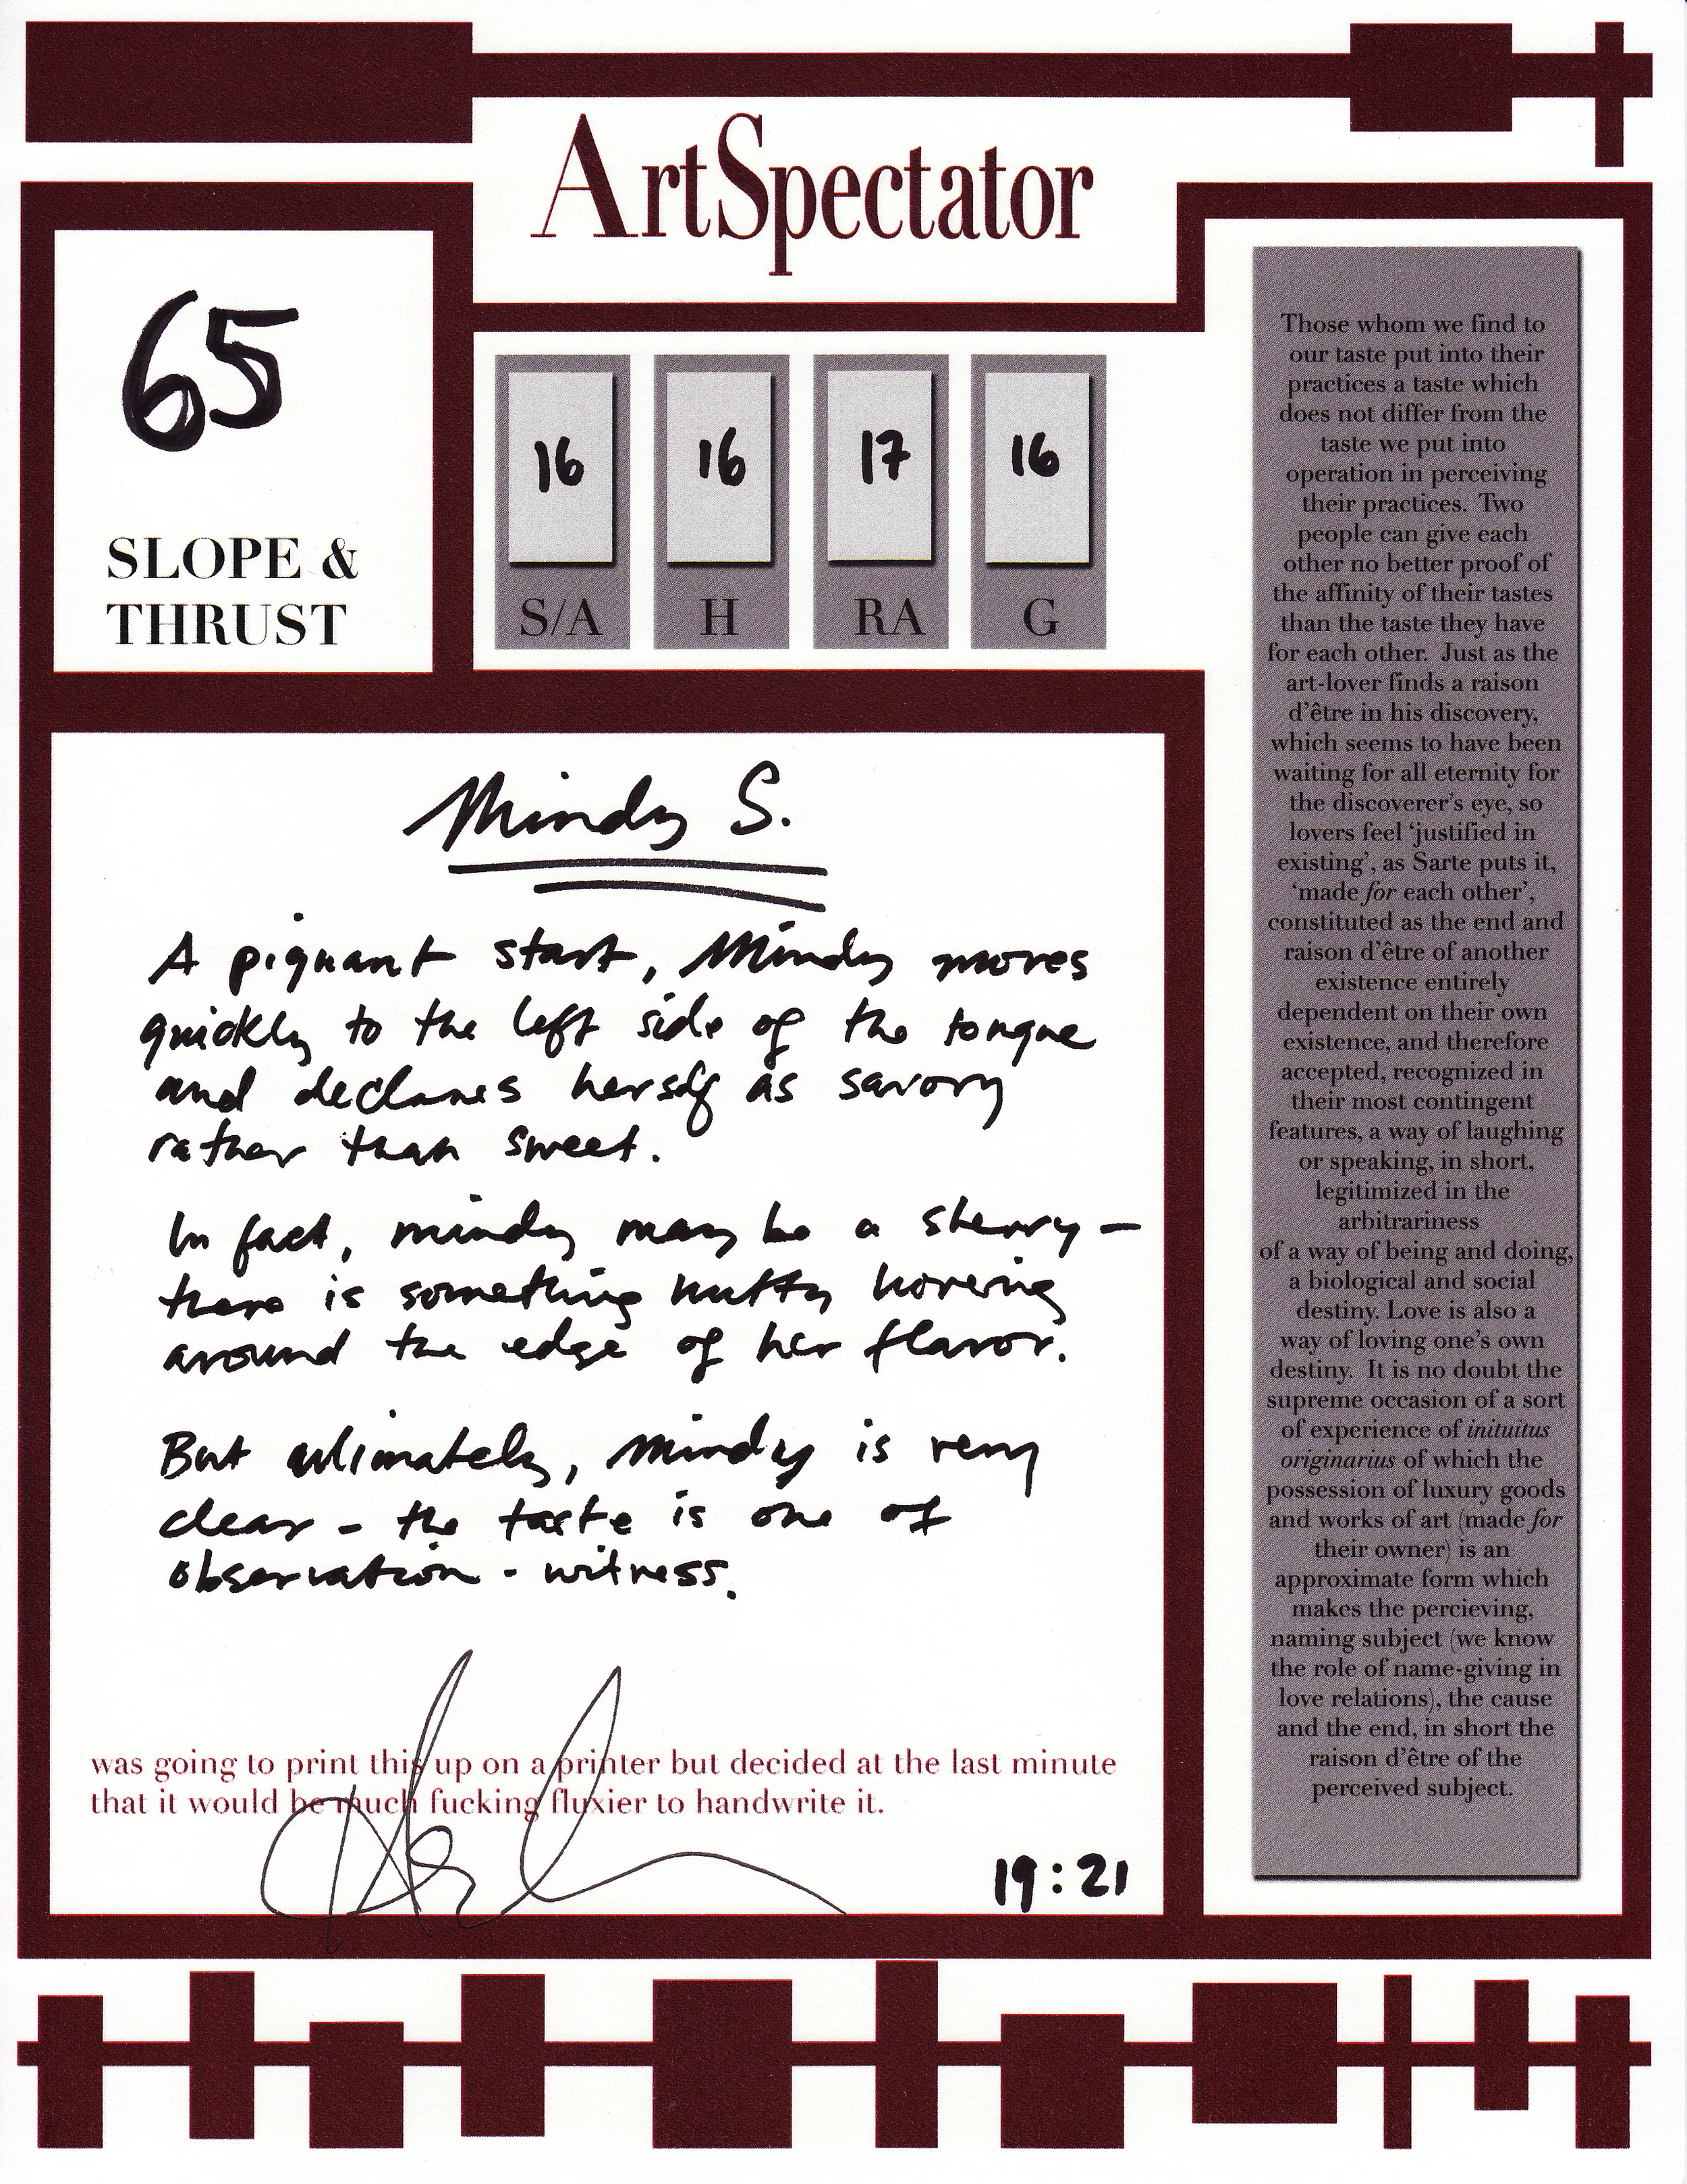 ArtSpectator
65
SLOPE &
THRUST
16 16 17 16
S/A H RA G
Mindy S.
A piquant start, Mindy moves
quickly to the left side of the tongue
and declares herself as savory
rather than sweet.
In fact, mindy may be a sherry —
there is something nutty hovering
around the edge of her flavor.
But ultimately, Mindy is very
clear - the taste is one of
observation - witness.
was going to print this up on a printer but decided at the last minute
that it would be much fucking fluxier to handwrite it.
19:21
Those whom we find to
our taste put into their
practices a taste which
does not differ from the
taste we put into
operation in perceiving
their practices. Two
people can give each
other no better proof of
the affinity of their tastes
than the taste they have
for each other. Just as the
art-lover finds a raison
d'être in his discovery,
which seems to have been
waiting for all eternity for
the discoverer's eye, so
lovers feel 'justified in
existing', as Sarte puts it,
'made for each other',
constituted as the end and
raison d'être of another
existence entirely
dependent on their own
existence, and therefore
accepted, recognized in
their most contingent
features, a way of laughing
or speaking, in short,
legitimized in the
arbitrariness
of a way of being and doing,
a biological and social
destiny. Love is also a
way of loving one's own
destiny. It is no doubt the
supreme occasion of a sort
of experience of inituitus
originarius of which the
possession of luxury goods
and works of art (made for
their owner) is an
approximate form which
makes the percieving,
naming subject (we know
the role of name-giving in
love relations), the cause
and the end, in short the
raison d'être of the
perceived subject.